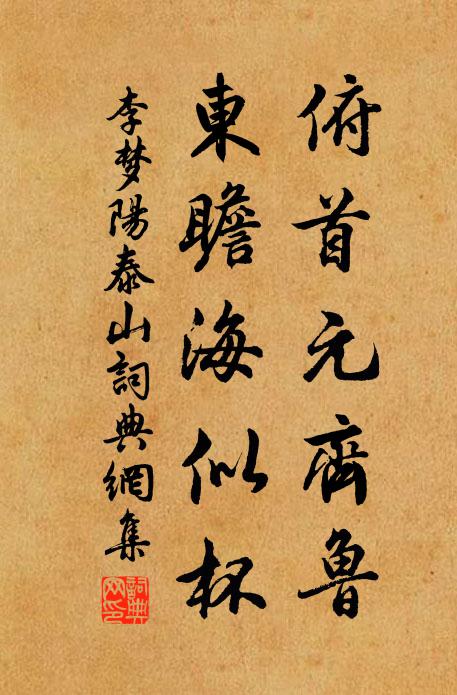 俯首元齊魯
東瞻海似杯
李梦陽泰山詞典網集
詞典网印